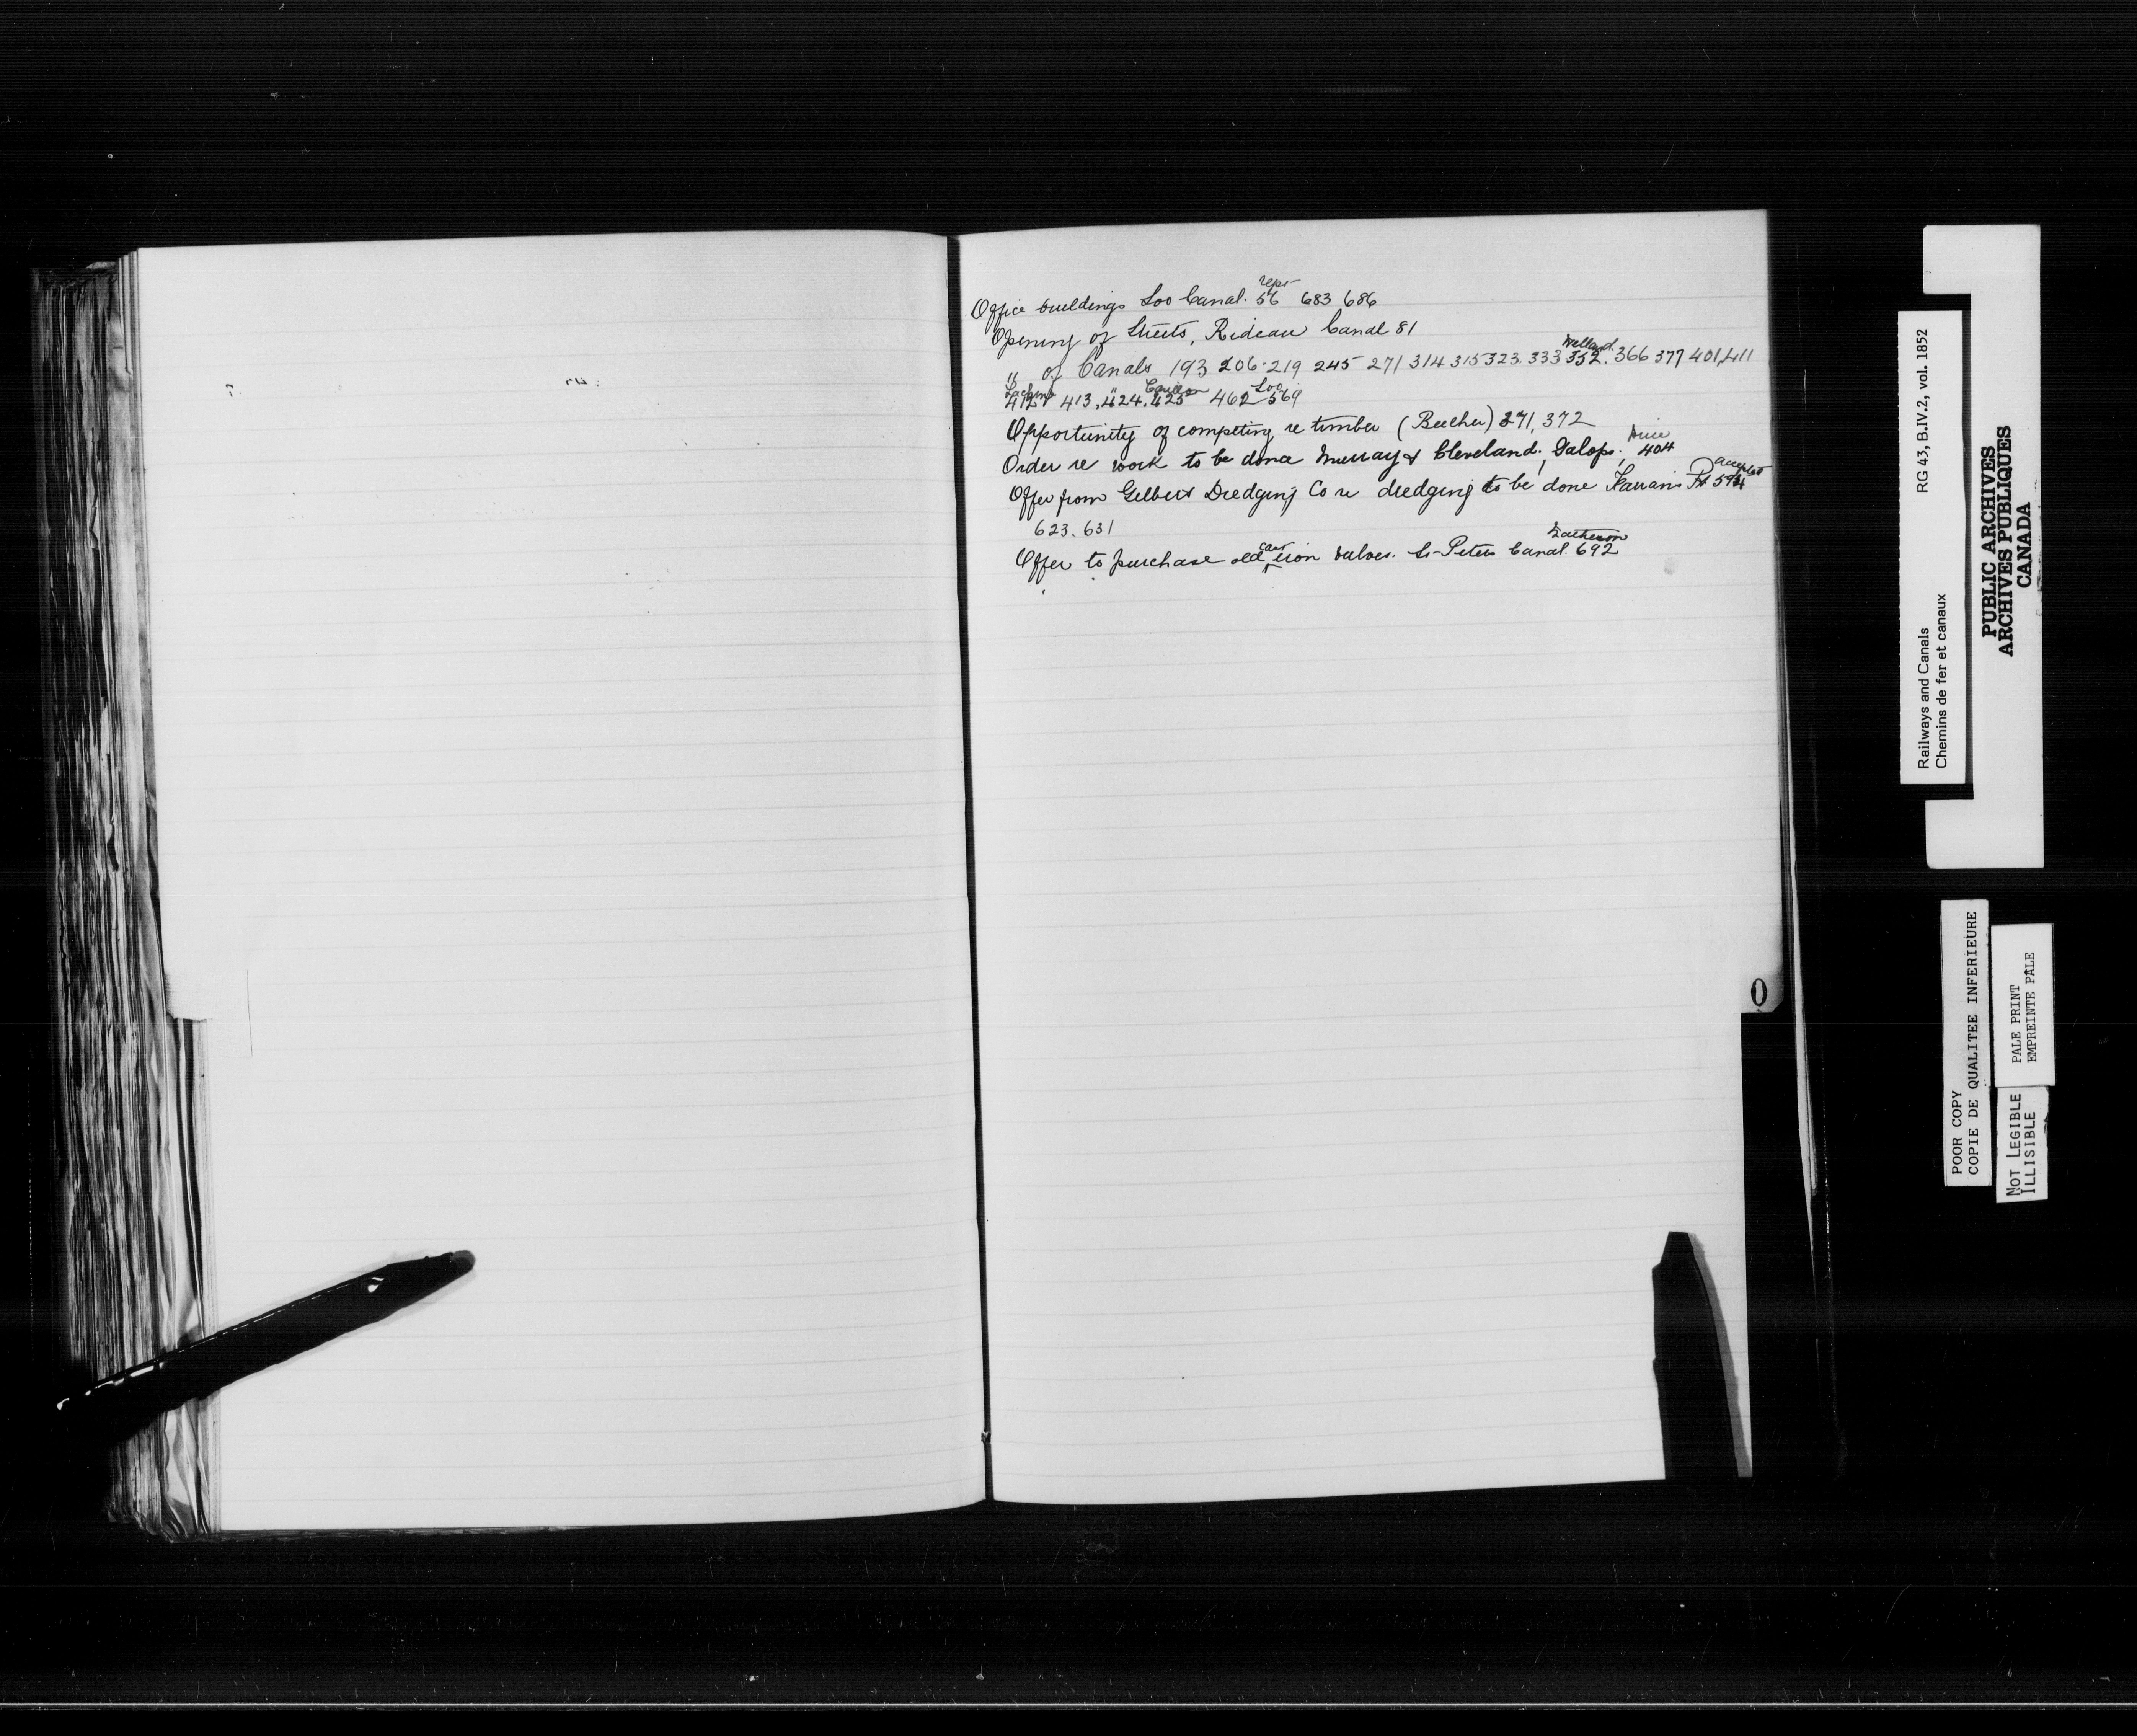 reps
Office buildings Soo Canal. 56 683 686
Opening of Streets, Rideau Canal 81
Welland
" of Canals 193 206. 219 245 271 314 315 323. 333 352. 366 377 401, 411
Lachine Soo
412 413, 424, 425 462 569
Opportunity of competing re timber (Beecher) 271, 372
Order re work to be done Murray & Cleveland, Galops, 404
accepted
Offer from Gilbert Dredging Co re dredging to be done Farrans Pt 594
623. 631
cast
Offer to purchase old iron valves. St Peters Canal. 692
O
Railways and Canals RG 43, B.IV.2, vol. 1852
Chemins de fer et canaux
PUBLIC ARCHIVES
ARCHIVES PUBLIQUES
CANADA
POOR COPY
COPIE DE QUALITEE INFERIEURE
PALE PRINT
EMPREINTE PALE
NOT LEGIBLE
ILLISIBLE